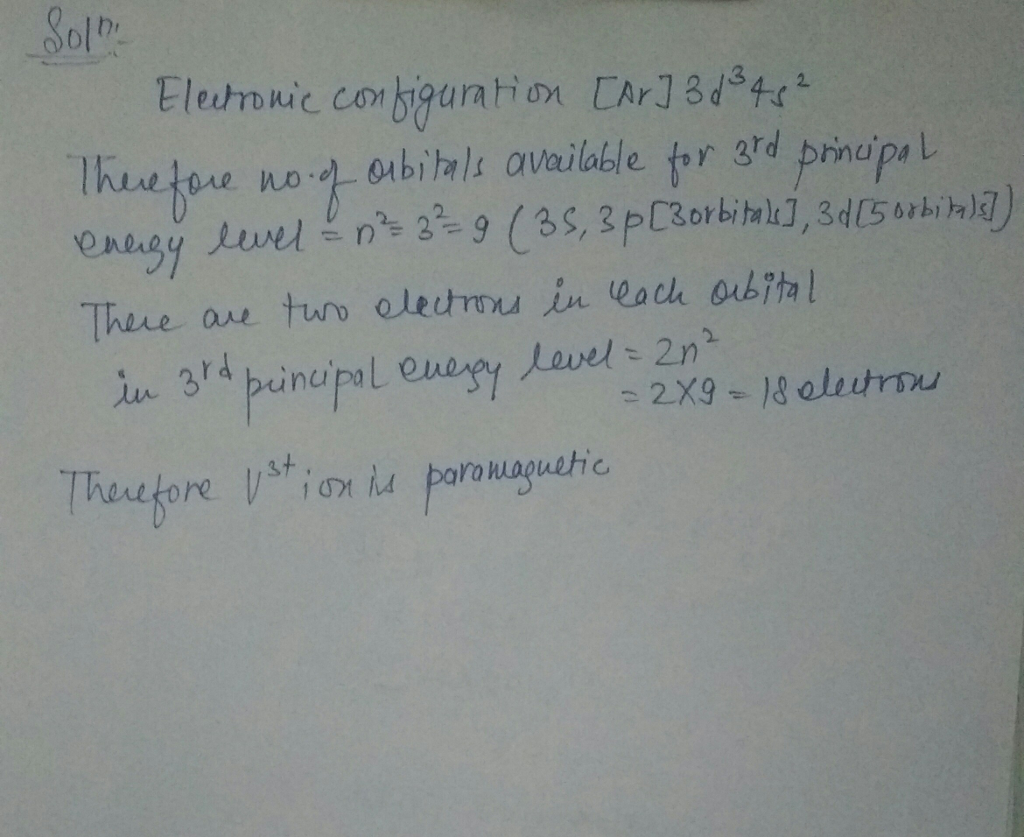 Soln:-
Electronic configuration [Ar] 3d³4s²
Therefore no. of orbitals available for 3rd principal
energy level = n² = 3² = 9 (3S, 3p[3orbitals], 3d[5 orbitals])
There are two electrons in each orbital
in 3rd principal energy level = 2n²
= 2×9 = 18 electrons
Therefore V³⁺ ion is paramagnetic